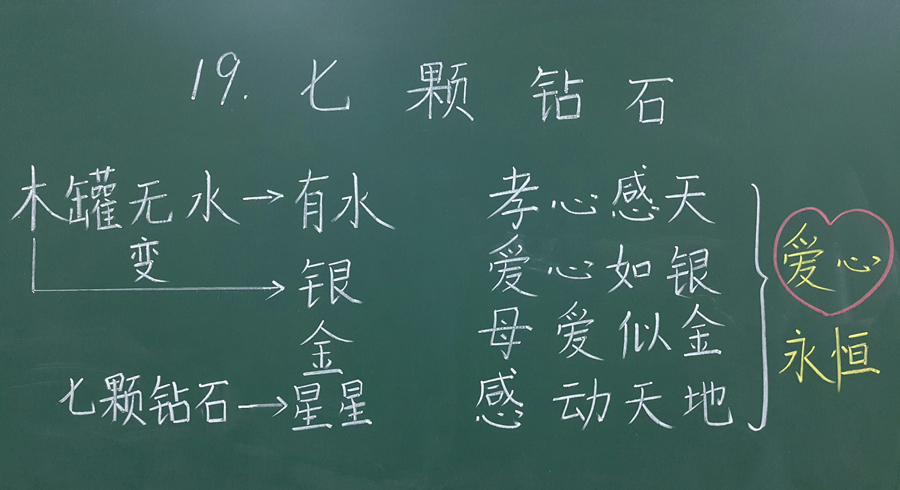 19. 七颗钻石
木罐无水→有水
变
银
金
七颗钻石→星星
孝心感天
爱心如银
母爱似金
感动天地
爱心
永恒